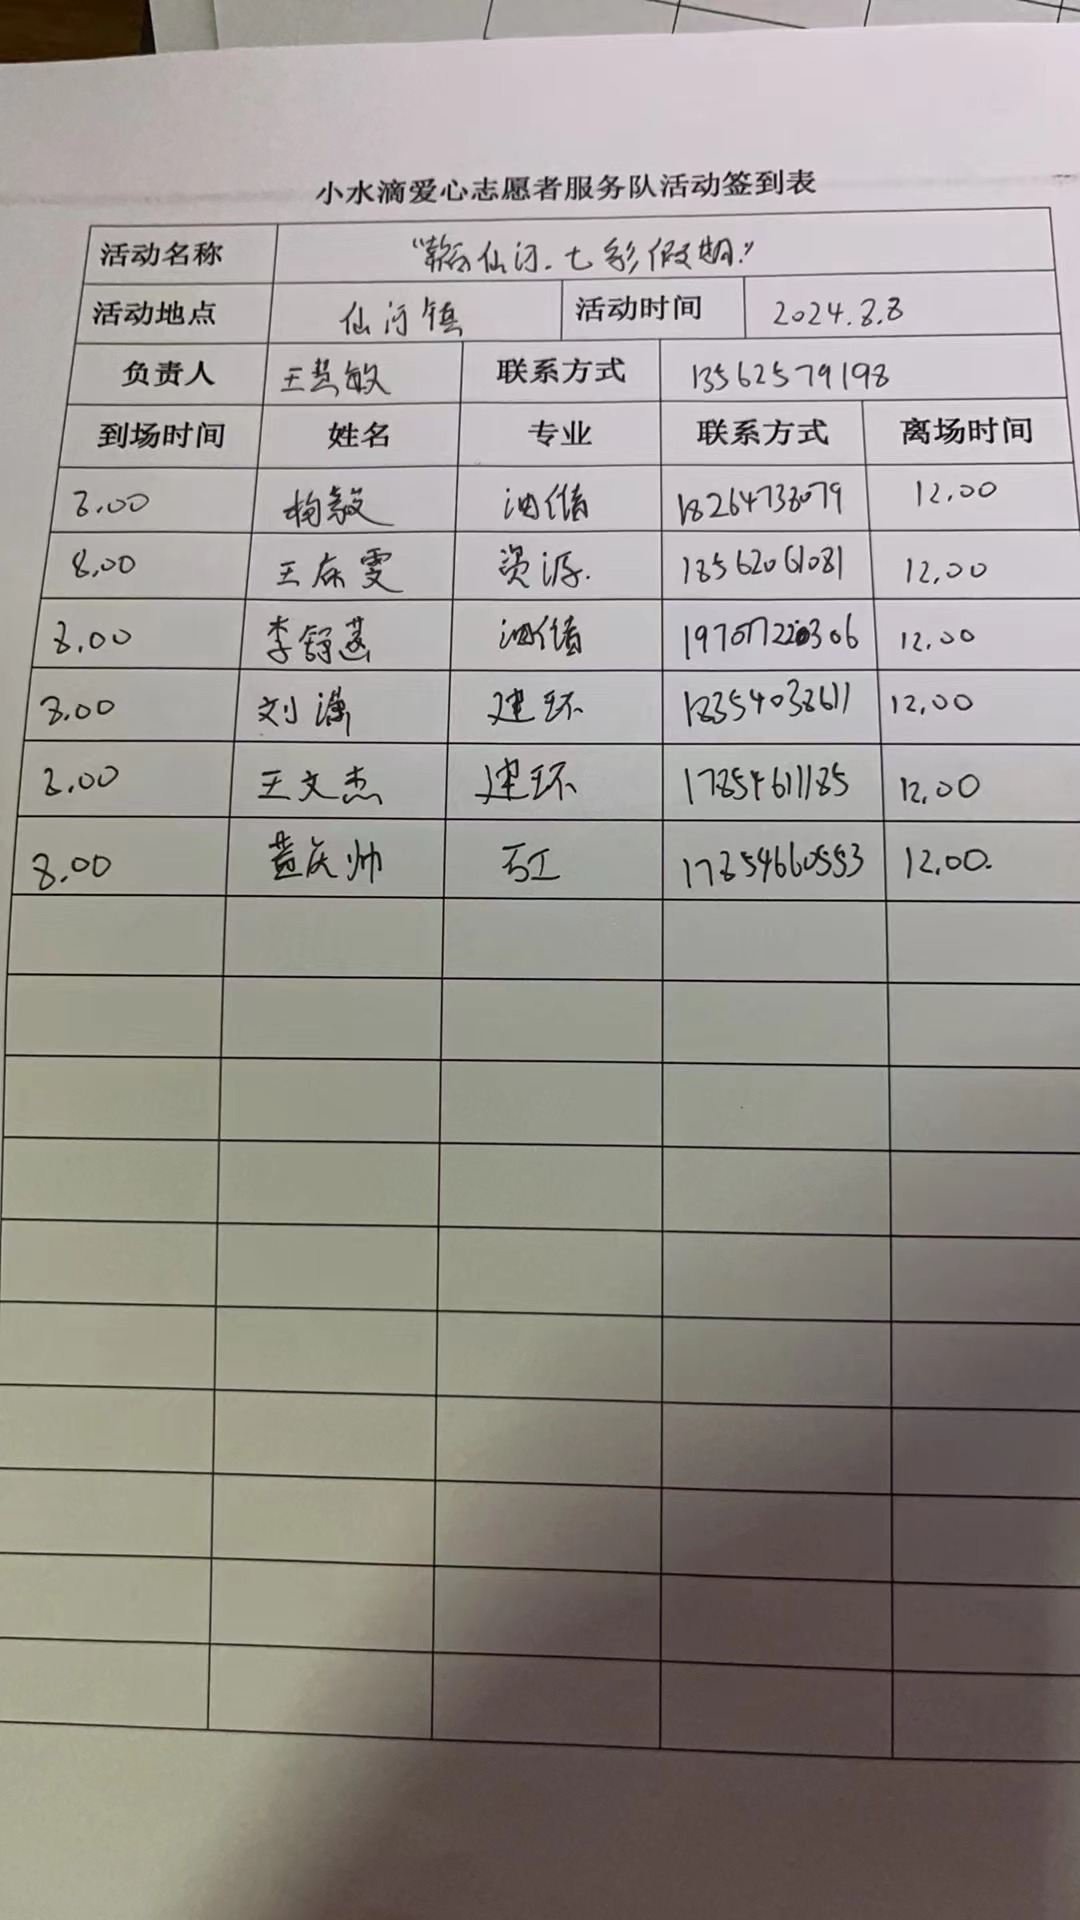 小水滴爱心志愿者服务队活动签到表
活动名称 “ 仙河.七彩假期.”
活动地点 仙河镇 活动时间 2024.8.8
负责人 王慧敏 联系方式 13562579198
到场时间 姓名 专业 联系方式 离场时间
8.00 杨毅 油储 18264738079 12.00
8.00 王乐雯 资源. 18562061081 12.00
8.00 李舒 油储 12.00
8.00 刘潇 建环 18354038611 12.00
8.00 王文杰 建环 17854611185 12.00
8.00 黄庆帅 石工 17854660553 12.00.